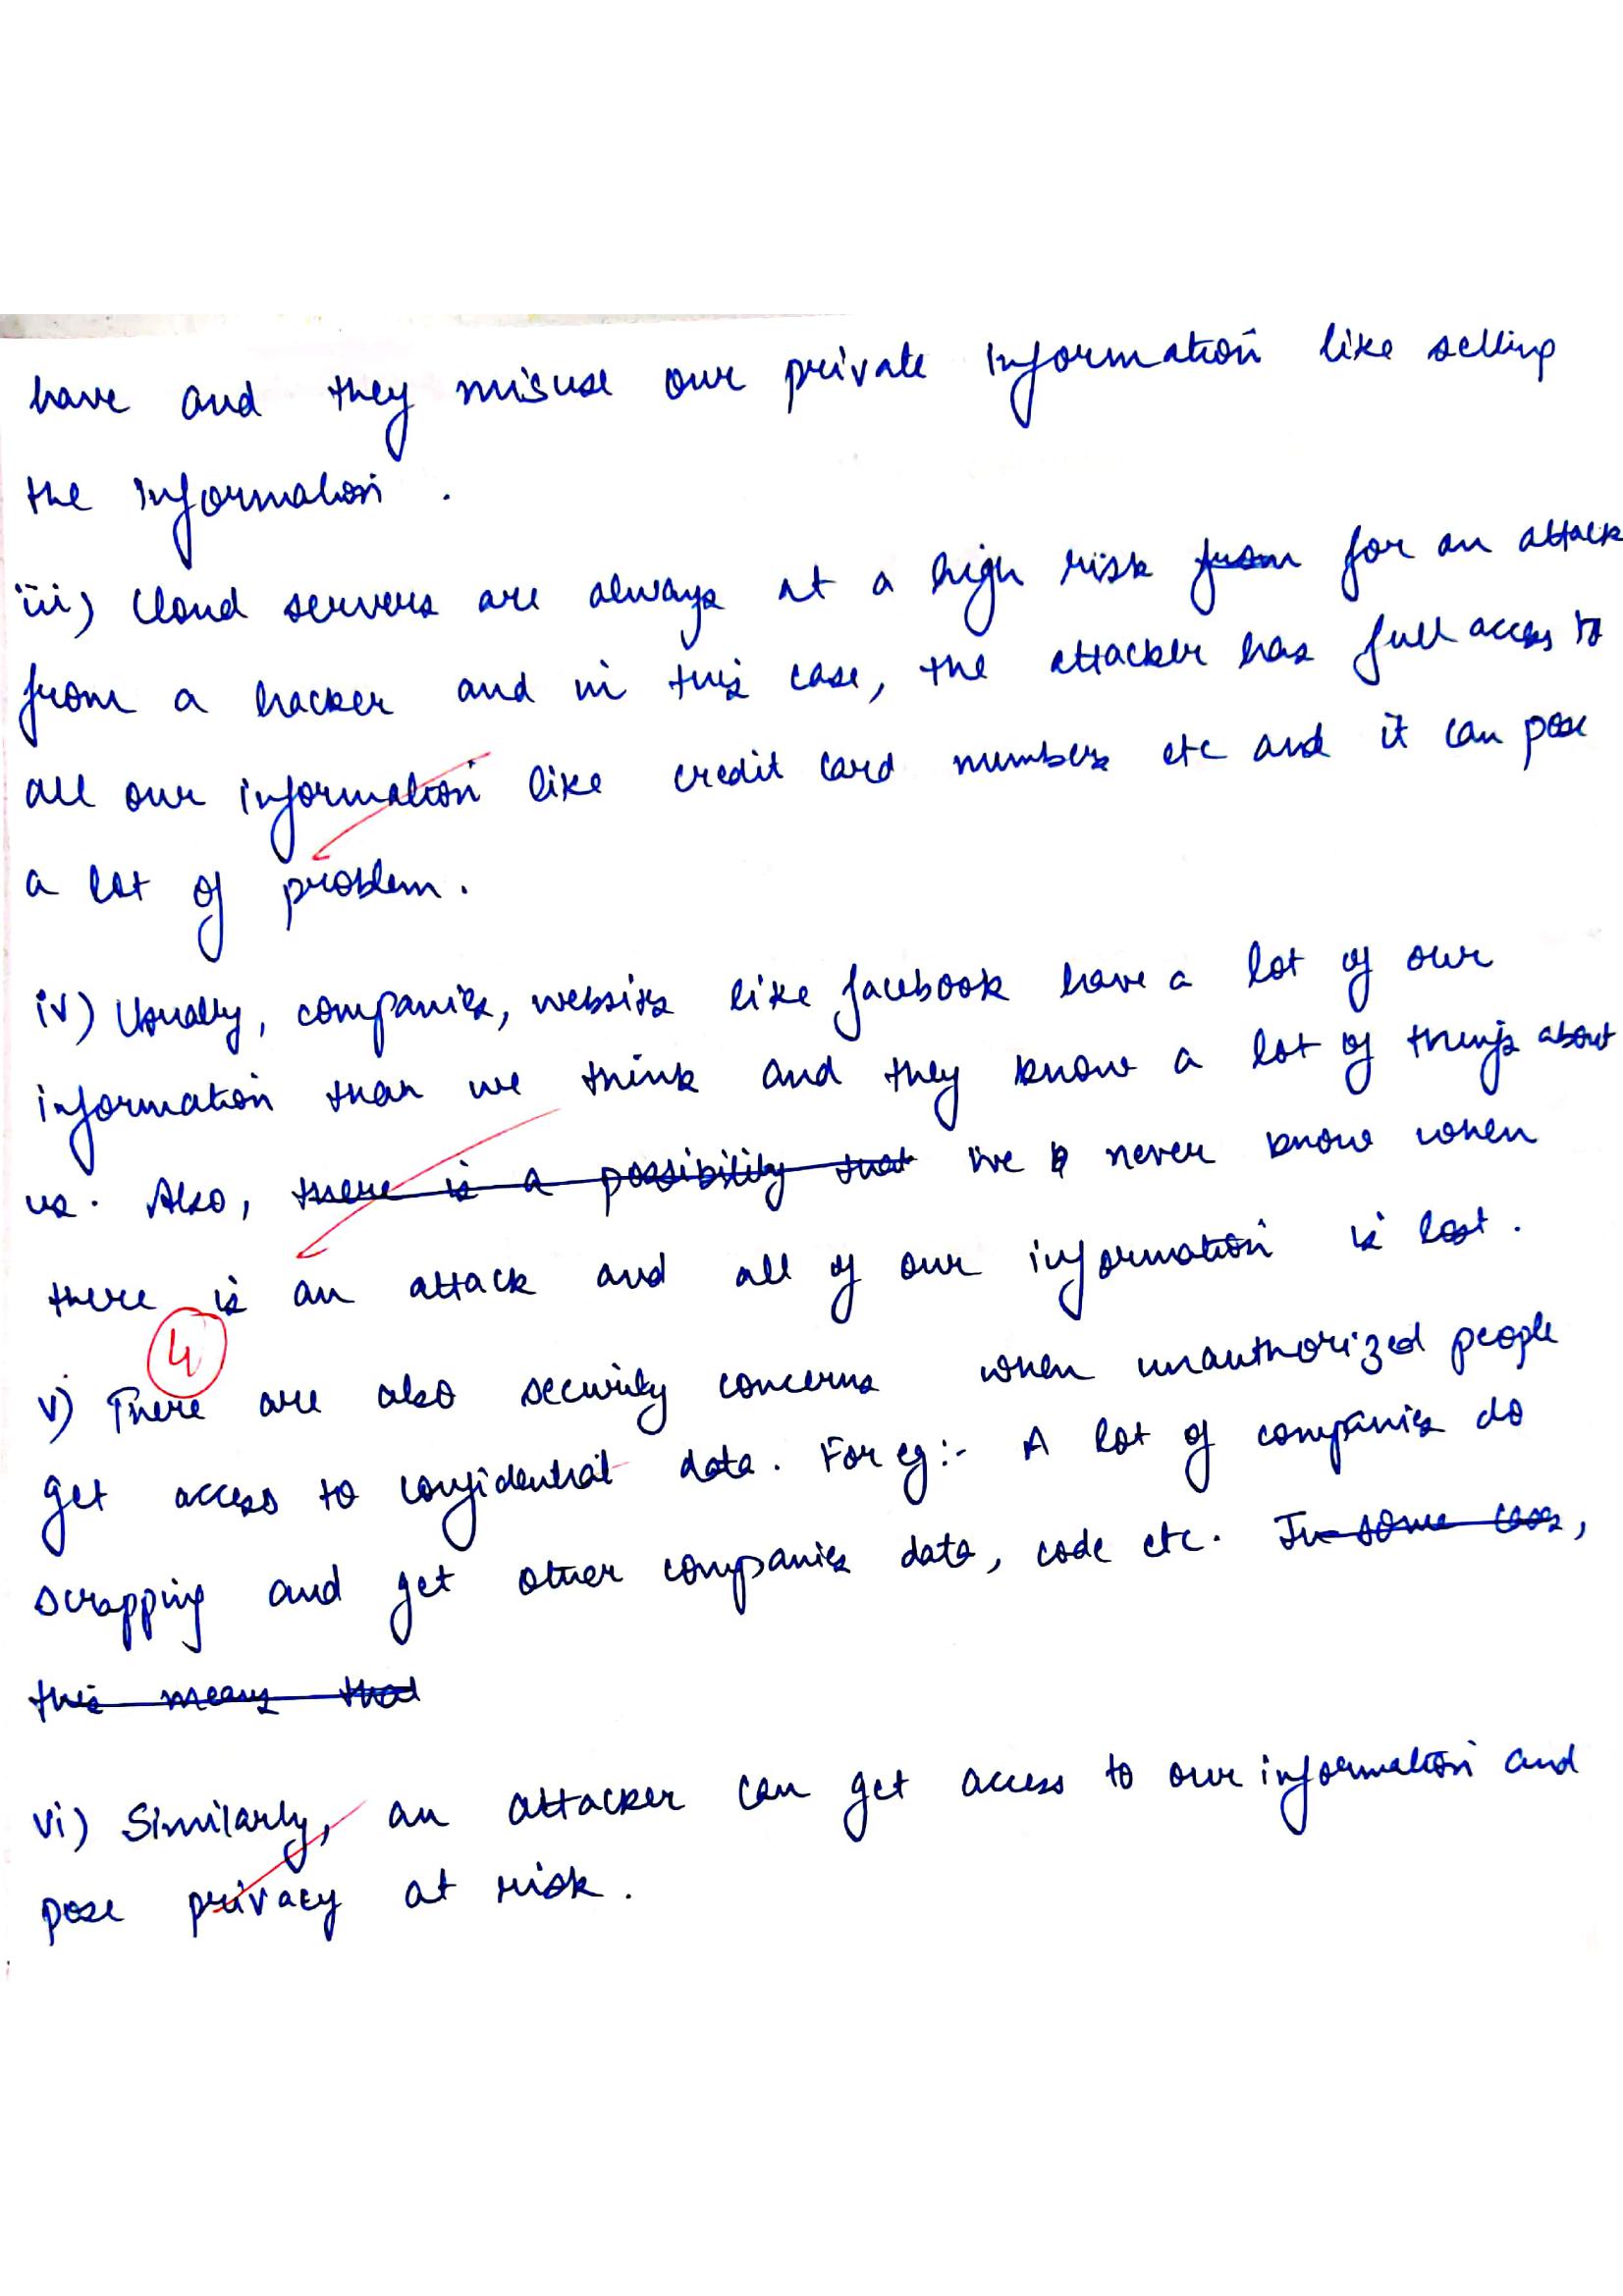 have and they misuse our private information like selling
the information .
iii) Cloud servers are always at a high risk from for an attack
from a hacker and in this case, the attacker has full access to
all our information like credit card numbers etc and it can pose
a lot of problem .
iv) Usually, companies, websites like facebook have a lot of our
information than we think and they know a lot of things about
us. Also, there is a possibility that we never know when
there is an attack and all of our information is lost .
4
v) There are also security concerns when unauthorized people
get access to confidential data. For eg:- A lot of companies do
scrapping and get other companies data, code etc. In some cases,
this means that
vi) Similarly, an attacker can get access to our information and
pose privacy at risk .